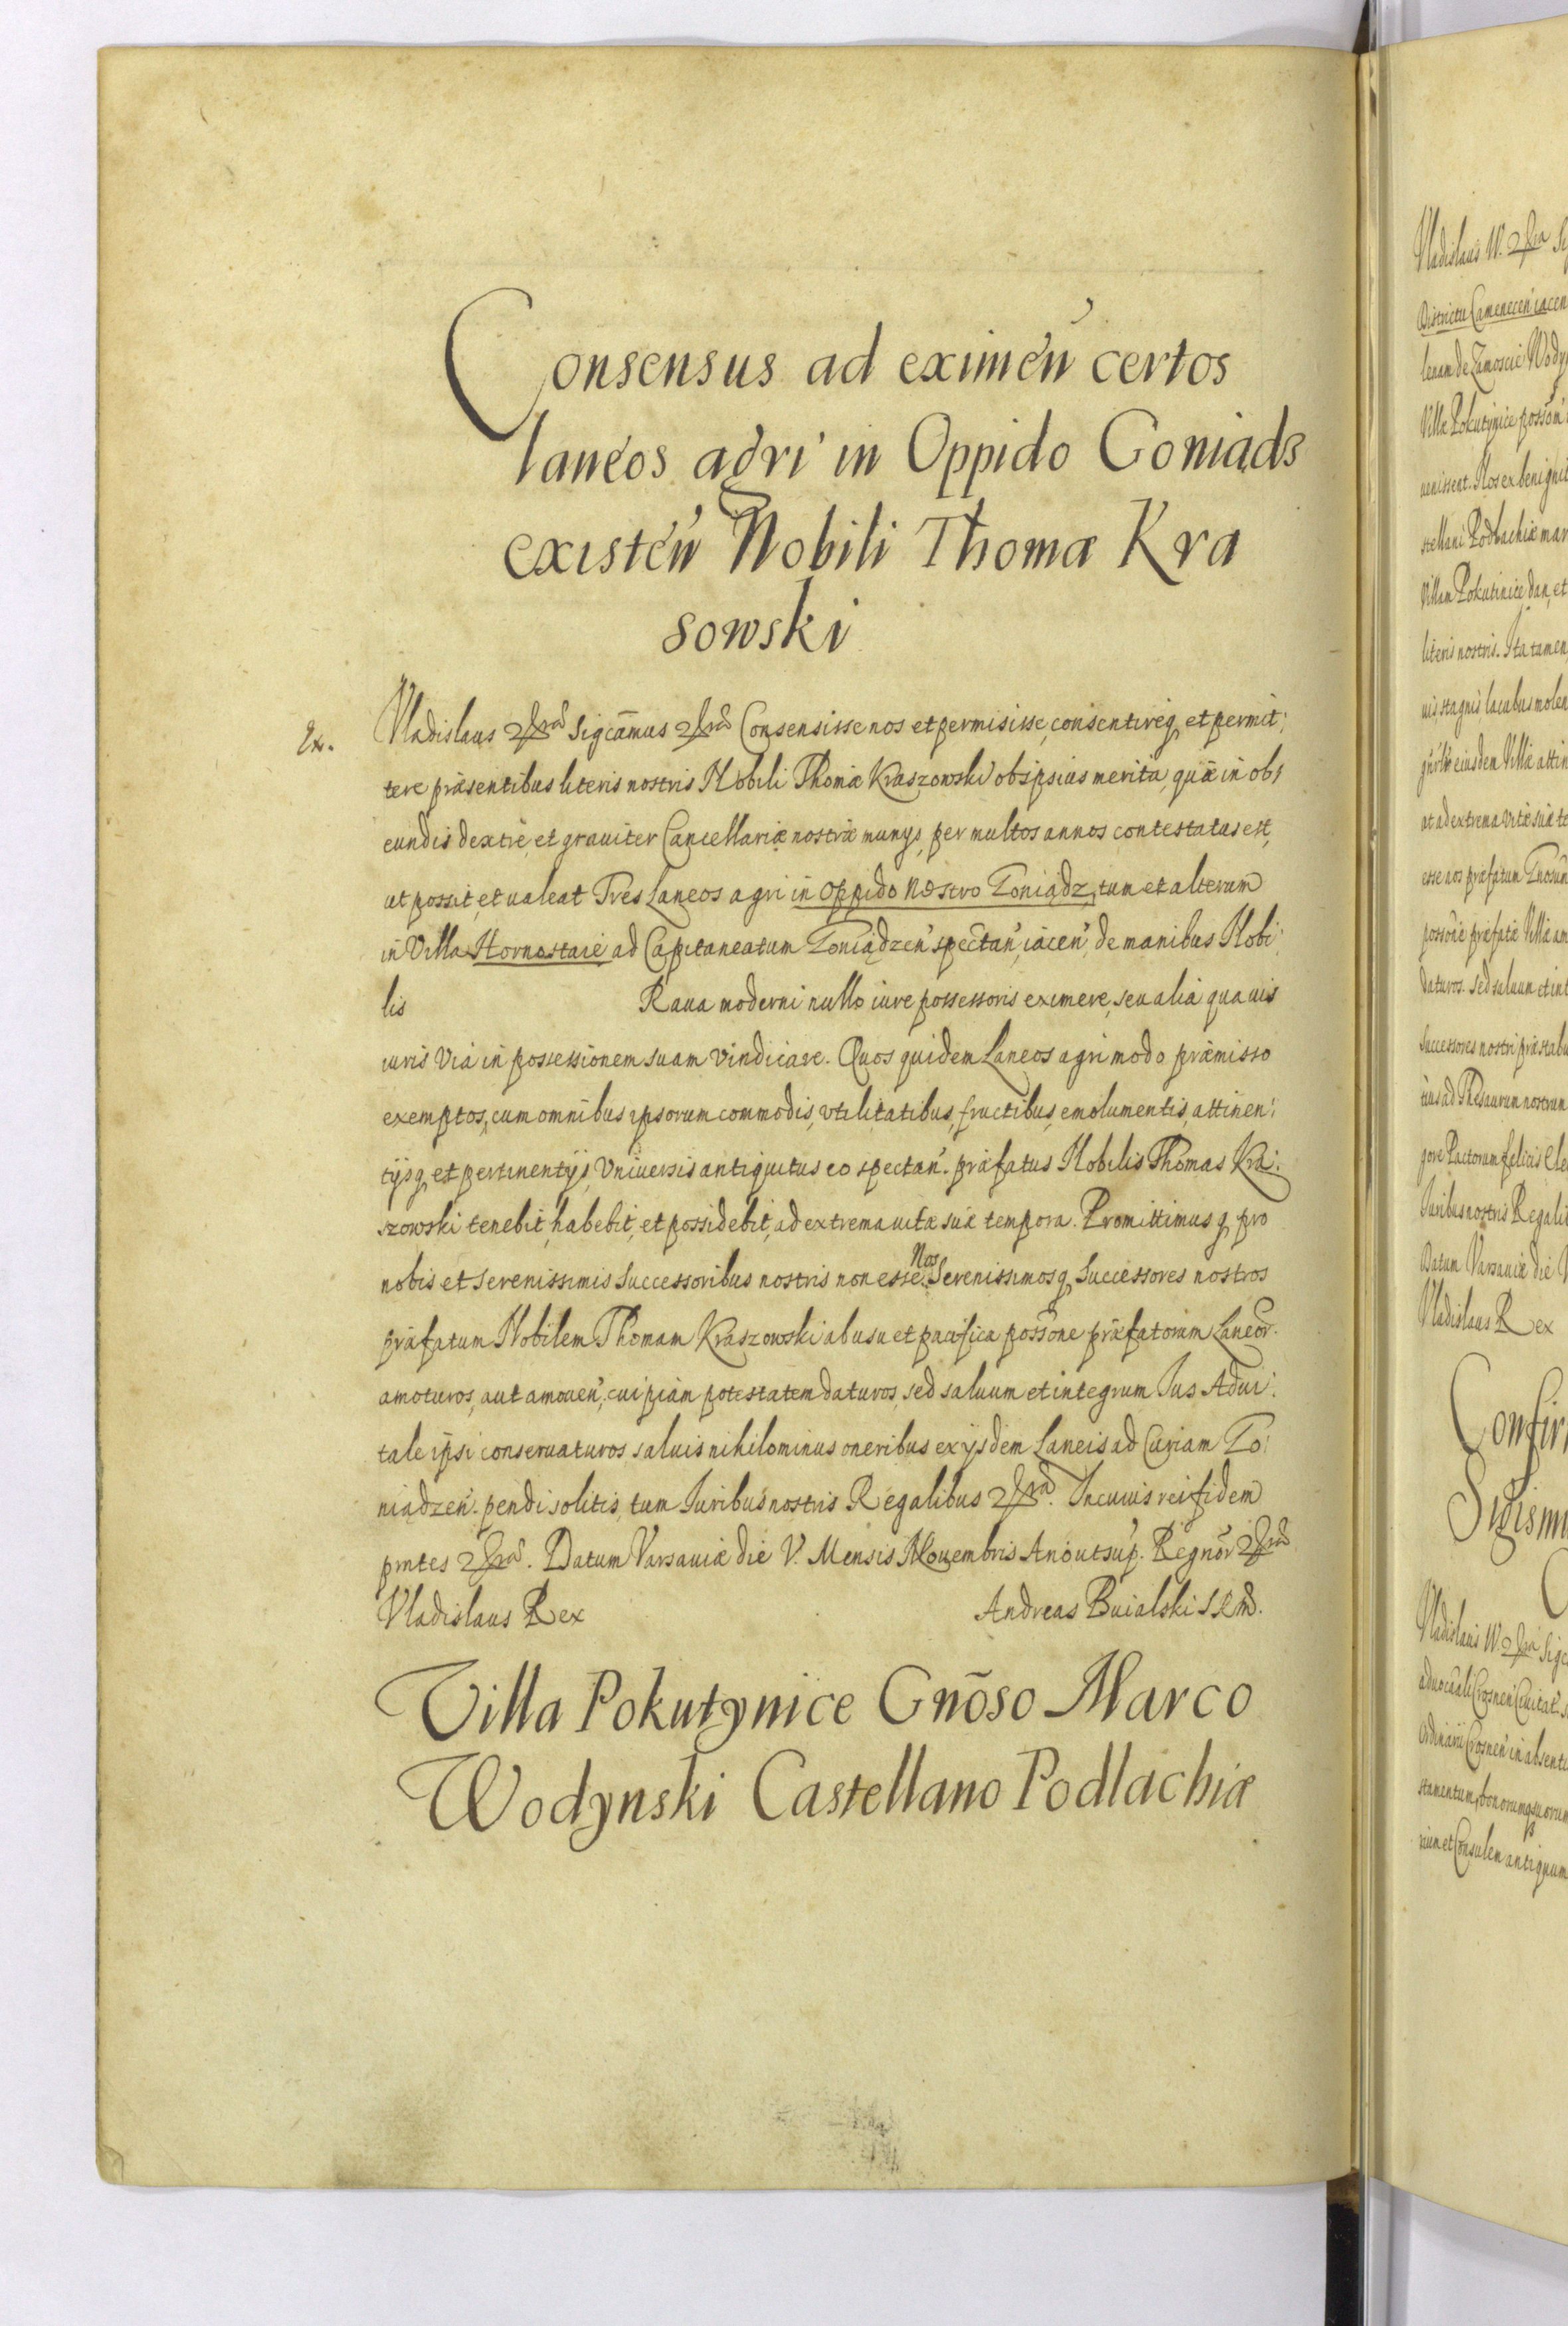 Consensus ad eximen̄ certos
laneos agri in Oppido Goniądz
existen̄ Nobili Thomæ Kra
sowski
Ex.
Vladislaus etc̃ra Sigcāmus etc̃ra Consensisse nos et permisisse, consentireq et permit:
tere præsentibus literis nostris Nobili Thomæ Kraszowski ob ipsius merita, quæ in ob:
eundis dextrè, et grauiter Cancellariæ nostræ munijs, per multos annos contestatus est,
ut possit, et ualeat Tres Laneos agri in Oppido Nostro Goniądz, tum et alterum
in Villa Hornostaie ad Capitaneatum Goniądzen̄ spectan̄, iacen̄, de manibus Nobi:
lis Raua moderni nullo iure possessoris eximere, seu alia quauis
iuris via in possessionem suam vindicare. Quos quidem Laneos agri modo præmisso
exemptos, cum omnibus ipsorum commodis, vtilitatibus, fructibus, emolumentis, attinen:
tijsq et pertinentijs Vniuersis antiquitus eo spectan̄. præfatus Nobilis Thomas Kra:
szowski tenebit, habebit, et possidebit, ad extrema uitæ suæ tempora. Promittimusq pro
nobis et Serenissimis Successoribus nostris non esse Nos Serenissimosq Successores nostros
præfatum Nobilem Thomam Kraszowski ab usu et pacifica possōne præfatorum Laneor.
amoturos, aut amouen̄, cuipiam potestatem daturos, sed saluum et integrum Ius Adui:
tale ipsi conseruaturos, saluis nihilominus oneribus ex ijsdem Laneis ad Curiam Go:
niądzen̄. pendi solitis, tum Iuribus nostris Regalibus etc̃ra. In cuius rei fidem
pntes etc̃ra. Datum Varsauiæ die V. Mensis Nouembris Anō ut sup̄. Regnōr etc̃ra
Vladislaus Rex Andreas Buialski
Villa Pokutynice Gnōso Marco
Wodynski Castellano Podlachiæ
Vladislaus IV. etc̃ra
Districtu Camenecen̄ iacen
de Zamoscie Wody
Villæ Pokutynice possōn
uenissent. Nos ex benignit
stellani Podlachiæ
Villam Pokutinice dan, et
literis nostris. Ita tamen
uis stagnis lacubus molen
eiusdem Villæ attin
at ad extrema vitæ suæ te
esse nos præfatum
possōne præfatæ Villæ am
daturos. sed saluum et int
Successores nostri præstabu
ad Thesaurum nostrum
Pactorum felicis Ele
Iuribus nostris Regalib
Datum Varsauiæ die V
Vladislaus Rex
Confir
Sigism
Vladislaus IV. etc̃ra Sigc
Crosnen̄ Ciuitat.
Ordinarii Crosnen̄ in absenti
stamentum, bonorumq suorum
et Consulem antiquum